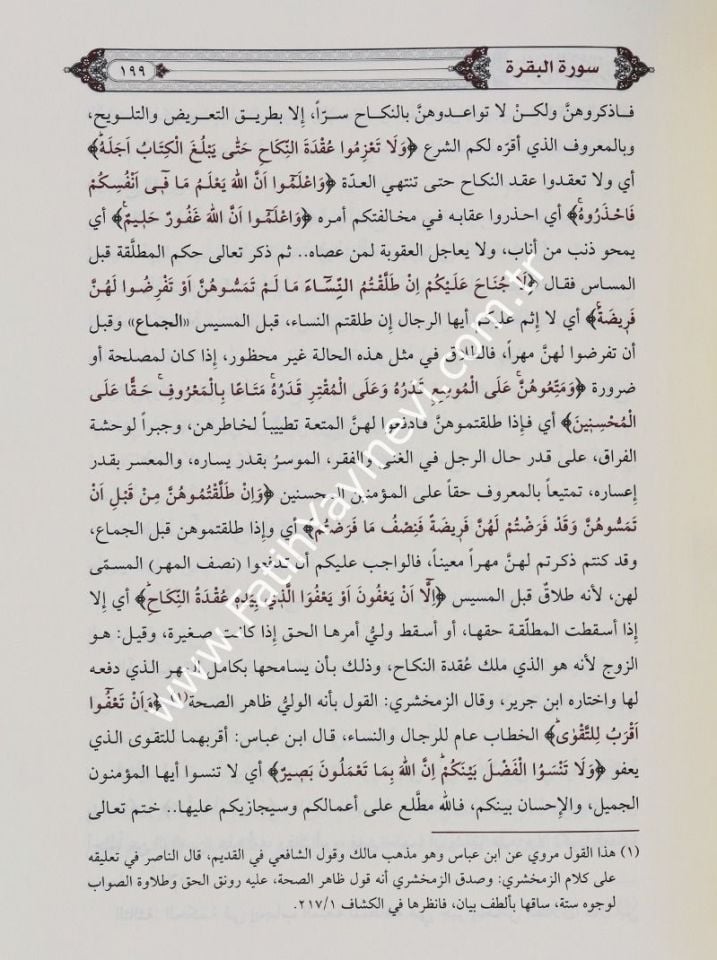 سورة البقرة
١٩٩
فاذكروهنَّ ولكنْ لا تواعدوهنَّ بالنكاح سرّاً، إلا بطريق التعريض والتلويح،
وبالمعروف الذي أقرّه لكم الشرع ﴿وَلَا تَعْزِمُوا عُقْدَةَ النِّكَاحِ حَتّٰى يَبْلُغَ الْكِتَابُ اَجَلَهُ﴾
أي ولا تعقدوا عقد النكاح حتى تنتهي العدّة ﴿وَاعْلَمُٓوا اَنَّ اللهَ يَعْلَمُ مَا فٖٓى اَنْفُسِكُمْ
فَاحْذَرُوهُۚ﴾ أي احذروا عقابه في مخالفتكم أمره ﴿وَاعْلَمُٓوا اَنَّ اللهَ غَفُورٌ حَلٖيمٌ﴾ أي
يمحو ذنب من أناب، ولا يعاجل العقوبة لمن عصاه.. ثم ذكر تعالى حكم المطلَّقة قبل
المساس فقال ﴿لَا جُنَاحَ عَلَيْكُمْ اِنْ طَلَّقْتُمُ النِّسَٓاءَ مَا لَمْ تَمَسُّوهُنَّ اَوْ تَفْرِضُوا لَهُنَّ
فَرٖيضَةًۚ﴾ أي لا إثم عليكم أيها الرجال إن طلقتم النساء، قبل المسيس «الجماع» وقبل
أن تفرضوا لهنَّ مهراً، فالطلاق في مثل هذه الحالة غير محظور، إذا كان لمصلحة أو
ضرورة ﴿وَمَتِّعُوهُنَّۚ عَلَى الْمُوسِعِ قَدَرُهُ وَعَلَى الْمُقْتِرِ قَدَرُهُۚ مَتَاعًا بِالْمَعْرُوفِۚ حَقًّا عَلَى
الْمُحْسِنٖينَ﴾ أي فإذا طلقتموهنَّ فادفعوا لهنَّ المتعة تطييباً لخاطرهن، وجبراً لوحشة
الفراق، على قدر حال الرجل في الغنى والفقر، الموسرُ بقدر يساره، والمعسر بقدر
إعساره، تمتيعاً بالمعروف حقاً على المؤمنين المحسنين ﴿وَاِنْ طَلَّقْتُمُوهُنَّ مِنْ قَبْلِ اَنْ
تَمَسُّوهُنَّ وَقَدْ فَرَضْتُمْ لَهُنَّ فَرٖيضَةً فَنِصْفُ مَا فَرَضْتُمْ﴾ أي وإذا طلقتموهن قبل الجماع،
وقد كنتم ذكرتم لهنَّ مهراً معيناً، فالواجب عليكم أن تدفعوا (نصف المهر) المسمّى
لهن، لأنه طلاقٌ قبل المسيس ﴿اِلَّٓا اَنْ يَعْفُونَ اَوْ يَعْفُوَا الَّذٖى بِيَدِهٖ عُقْدَةُ النِّكَاحِ﴾ أي إلا
إذا أسقطت المطلّقة حقها، أو أسقط وليُّ أمرها الحق إذا كانت صغيرة، وقيل: هو
الزوج لأنه هو الذي ملك عُقدة النكاح، وذلك بأن يسامحها بكامل المهر الذي دفعه
لها واختاره ابن جرير، وقال الزمخشري: القول بأنه الوليُّ ظاهر الصحة(١) ﴿وَاَنْ تَعْفُٓوا
اَقْرَبُ لِلتَّقْوٰى﴾ الخطاب عام للرجال والنساء، قال ابن عباس: أقربهما للتقوى الذي
يعفو ﴿وَلَا تَنْسَوُا الْفَضْلَ بَيْنَكُمْ اِنَّ اللهَ بِمَا تَعْمَلُونَ بَصٖيرٌ﴾ أي لا تنسوا أيها المؤمنون
الجميل، والإحسان بينكم، فالله مطّلع على أعمالكم وسيجازيكم عليها.. ختم تعالى
(١) هذا القول مروي عن ابن عباس وهو مذهب مالك وقول الشافعي في القديم، قال الناصر في تعليقه
على كلام الزمخشري: وصدق الزمخشري أنه قول ظاهر الصحة، عليه رونق الحق وطلاوة الصواب
لوجوه ستة، ساقها بألطف بيان، فانظرها في الكشاف ٢١٧/١.
www.FatihYayinevi.com.tr